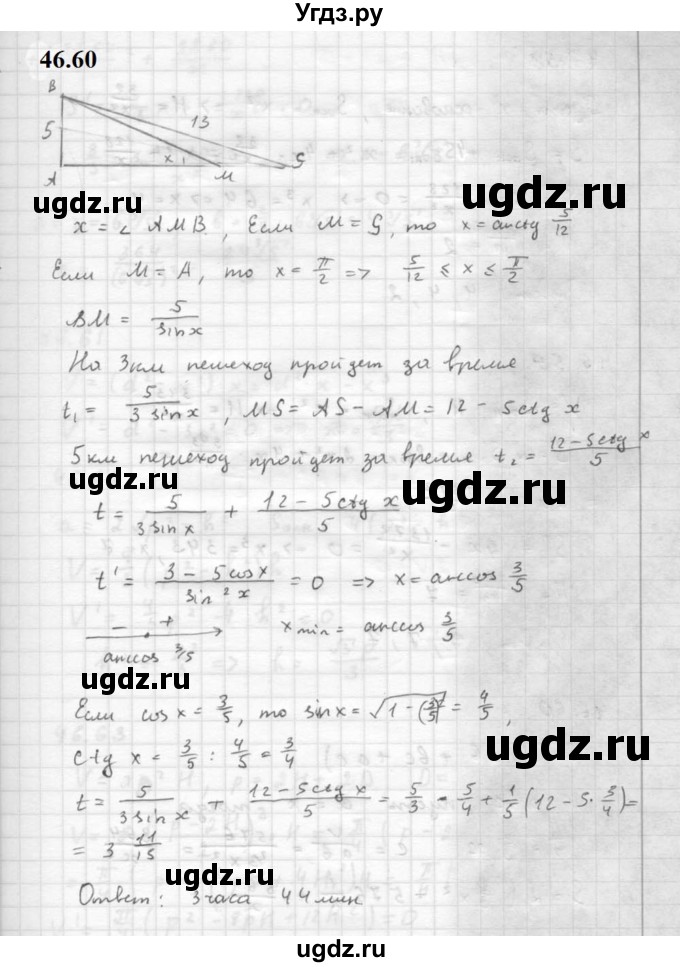 Угдз.ру
46.60
B
5
13
x
A
M
S
ugdz.ru
ugdz.ru
x = ∠ AMB, Если M = S, то x = arcctg 5/12
Если M = A, то x = π/2 => 5/12 ≤ x ≤ π/2
BM = 5/sin x
На 3км пешеход пройдет за время
t₁ = 5/(3 sin x), MS = AS – AM = 12 – 5ctg x
5км пешеход пройдет за время t₂ = (12 – 5ctg x)/5
ugdz.ru
ugdz.ru
t = 5/(3 sin x) + (12 – 5ctg x)/5
t' = (3 – 5cos x)/(sin² x) = 0 => x = arccos 3/5
– +
arccos 3/5
x min = arccos 3/5
ugdz.ru
Если cos x = 3/5, то sin x = √(1 – (3/5)²) = 4/5,
ctg x = 3/5 : 4/5 = 3/4
ugdz.ru
t = 5/(3 sin x) + (12 – 5ctg x)/5 = 5/3 · 5/4 + 1/5 (12 – 5 · 3/4) =
= 3 11/15
ugdz.ru
Ответ: 3 часа 44 мин
ugdz.ru
ugdz.ru